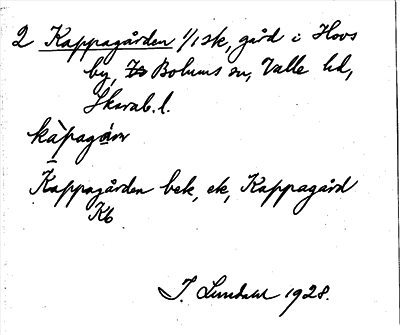 2 Kappagården 1/1 sk, gård i Hovs
by, Bolums sn, Valle hd,
Skarab. l.
kàpagán
Kappagården bek, ek, Kappagård
Kb
I. Lundahl 1928.